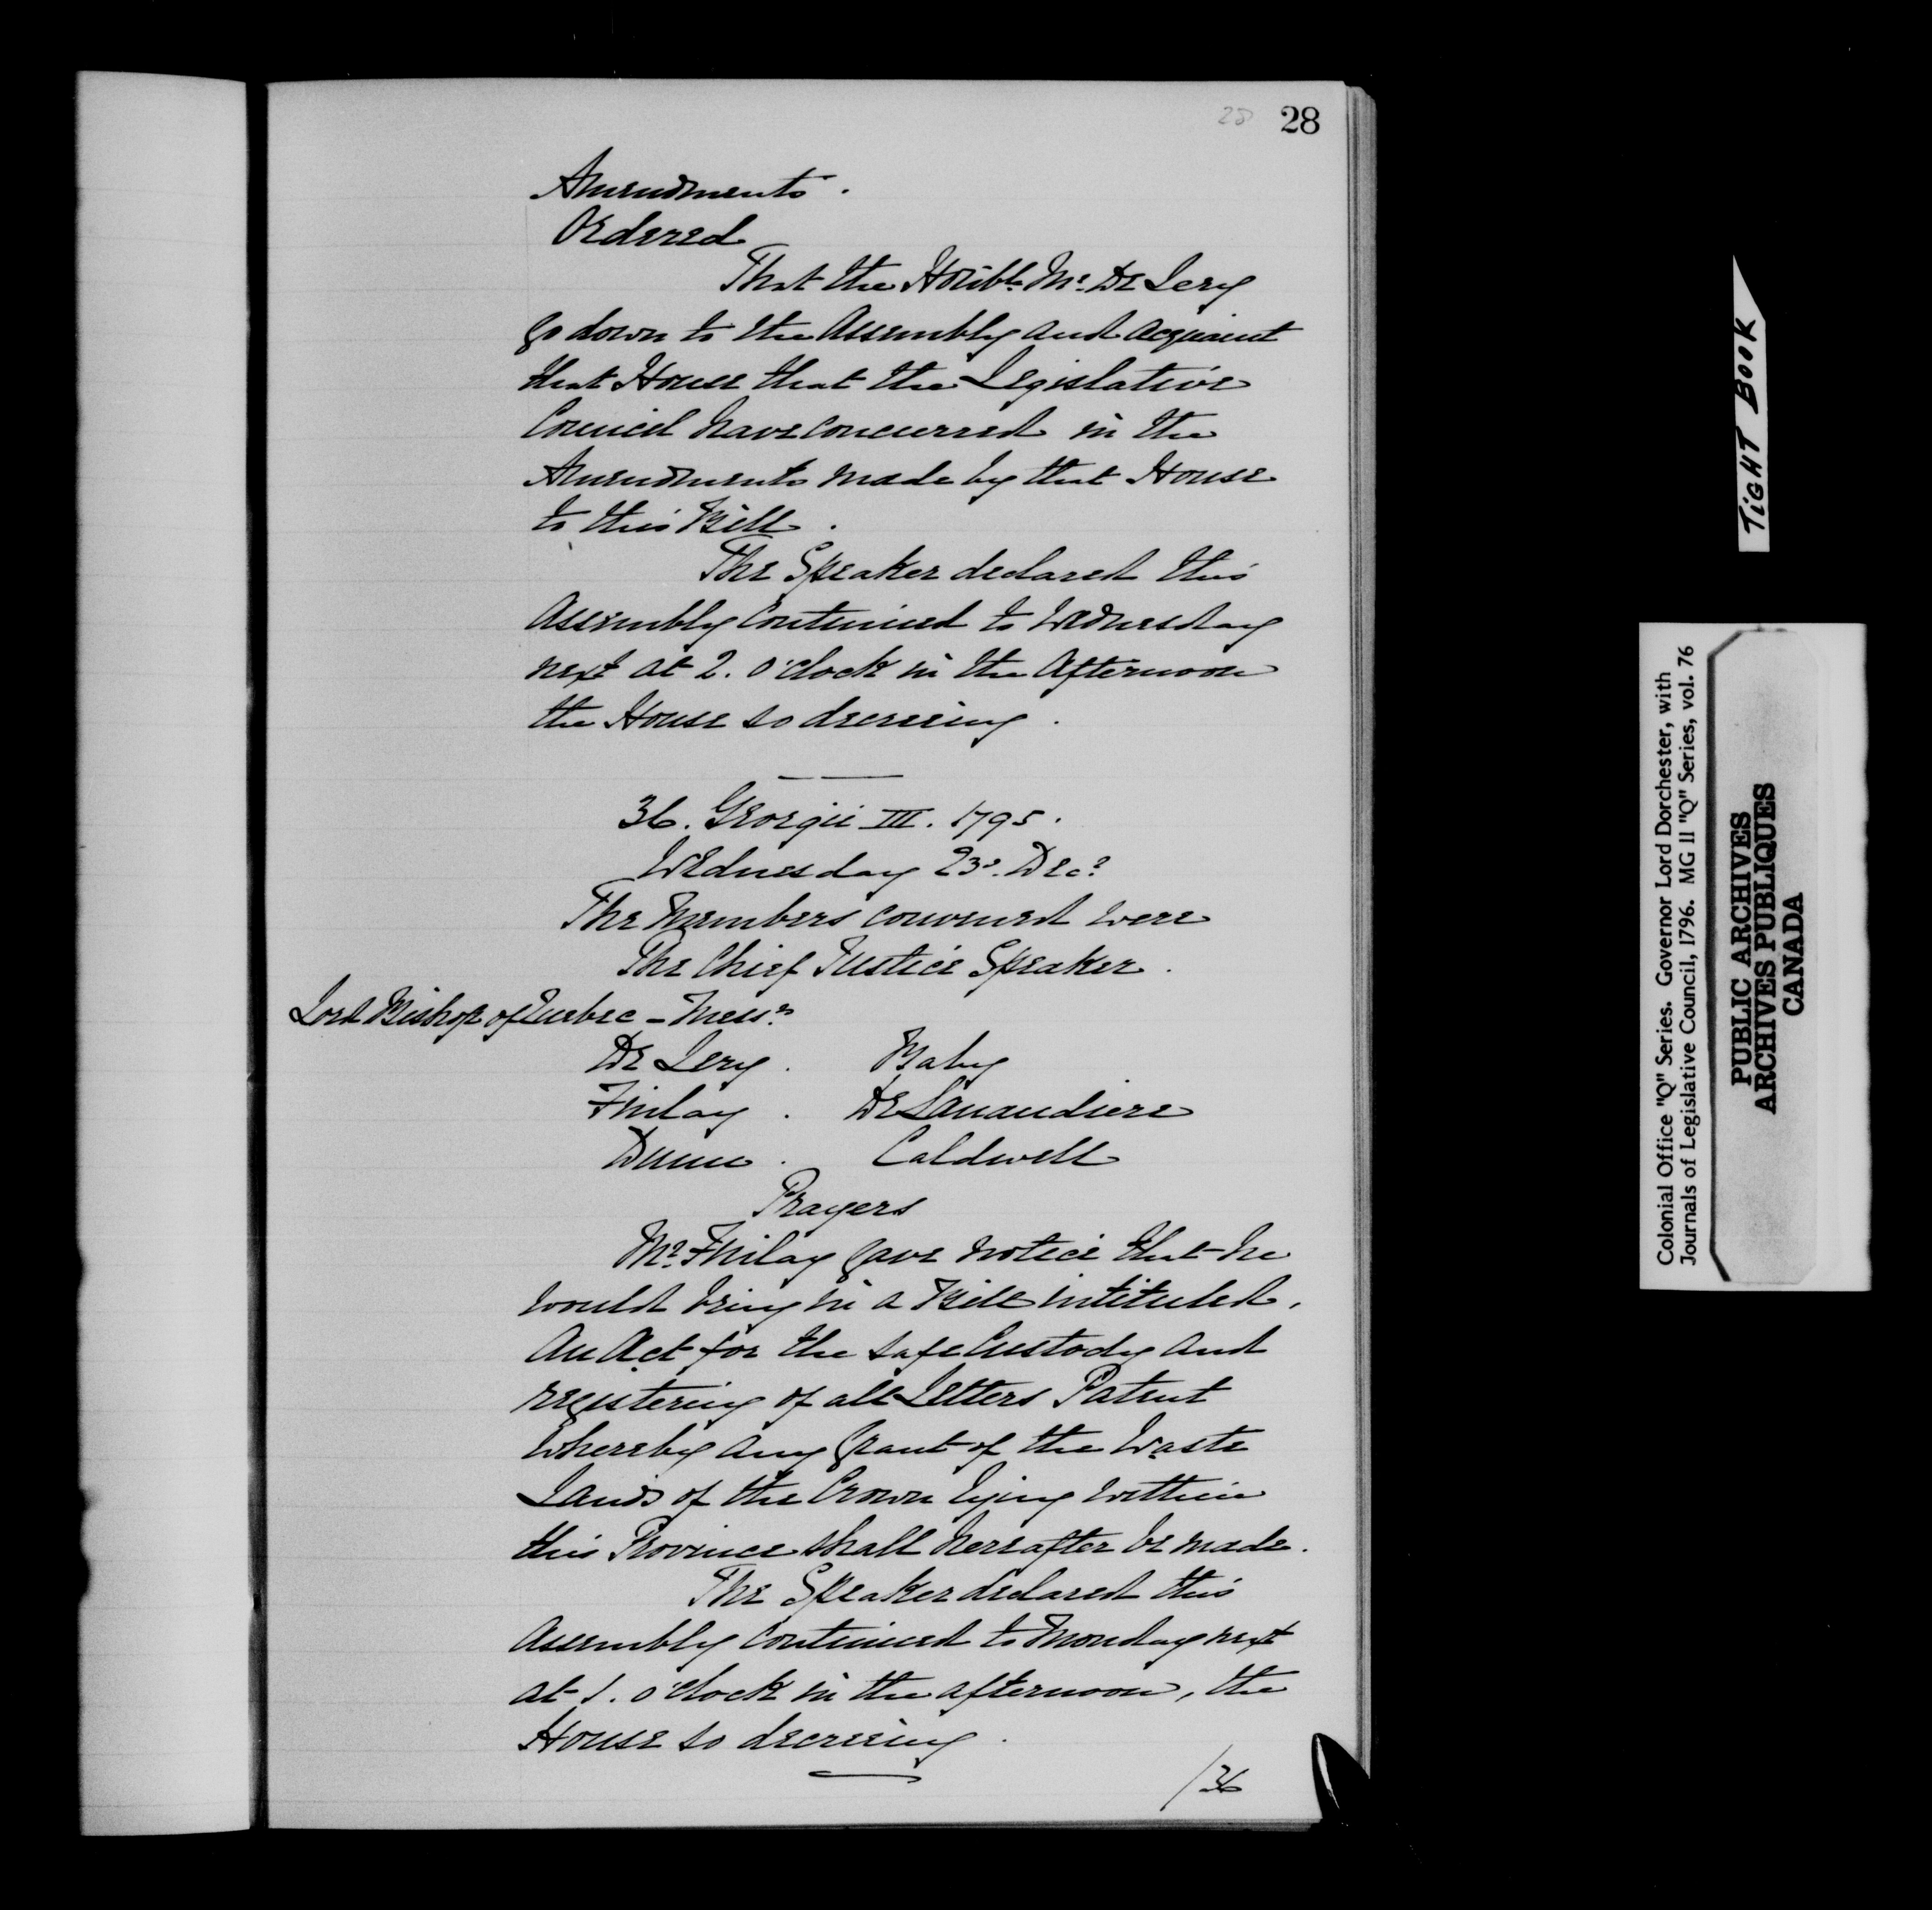 28 28
Amendments.
Ordered
That the Honble. Mr. De Lery
go down to the Assembly and acquaint
that House that the Legislative
Council have concurred in the
Amendments made by that House
to this Bill.
The Speaker declared this
Assembly continued to Wednesday
next at 2. o'clock in the Afternoon
the House so decreeing.
36. Georgii III. 1795.
Wednesday 23d. Decr
The Members convened were
The Chief Justice Speaker.
Lord Bishop of Quebec - Messrs
De Lery. Baby
Finlay. De Lanaudiere
Dunn. Caldwell
Prayers
Mr. Finlay gave notice that he
would bring in a Bill intituled,
An Act for the safe Custody and
registering of all Letters Patent
whereby any Grant of the Waste
Lands of the Crown lying within
this Province shall hereafter be made.
The Speaker declared this
Assembly continued to Monday next
at 1. o'clock in the afternoon, the
House so decreeing.
/36
TIGHT BOOK
Colonial Office "Q" Series. Governor Lord Dorchester, with
Journals of Legislative Council, 1796. MG 11 "Q" Series, vol. 76
PUBLIC ARCHIVES
ARCHIVES PUBLIQUES
CANADA